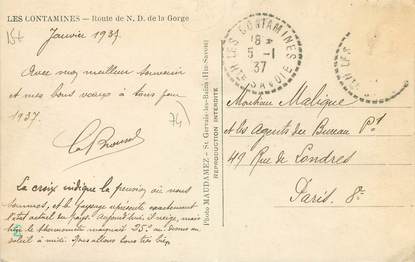 LES CONTAMINES — Route de N. D. de la Gorge
Janvier 1937
Avec mon meilleur souvenir
et mes bons vœux à tous pour
1937.
La croix indique la pension où nous
sommes, et le paysage représente exactement
l'état actuel du pays. Aujourd'hui il neige, mais
hier le thermomètre marquait 25° au dessus au
soleil à midi. Nous allons tous très bien
74)
Photo MAUDAMEZ — St. Gervais-les-Bains (Hte-Savoie)
REPRODUCTION INTERDITE
LES CONTAMINES
18 *
5 -1
37
Hte SAVOIE
LES
Hte
Monsieur Malique
et les Agents du Bureau Pl
49 Rue de Londres
Paris. 8e